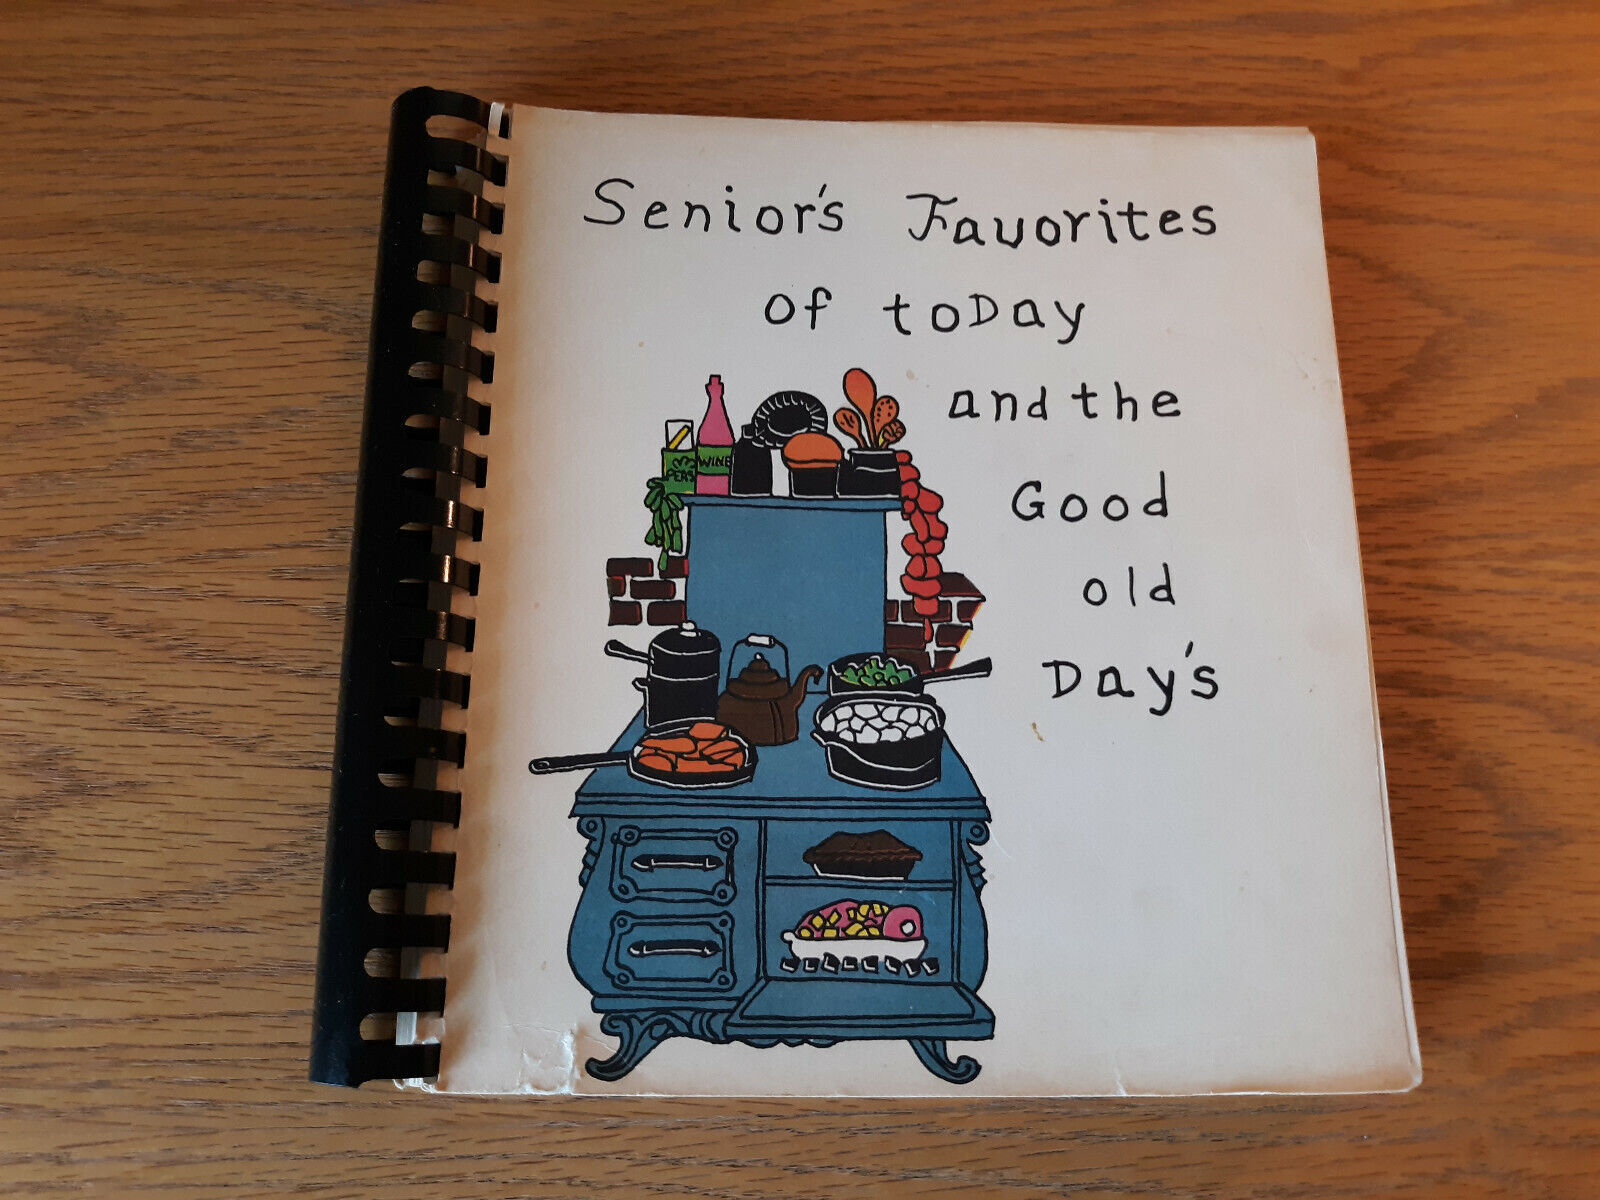 Senior's Favorites
of toDay
and the
Good
old
Day's
WINE
PERS